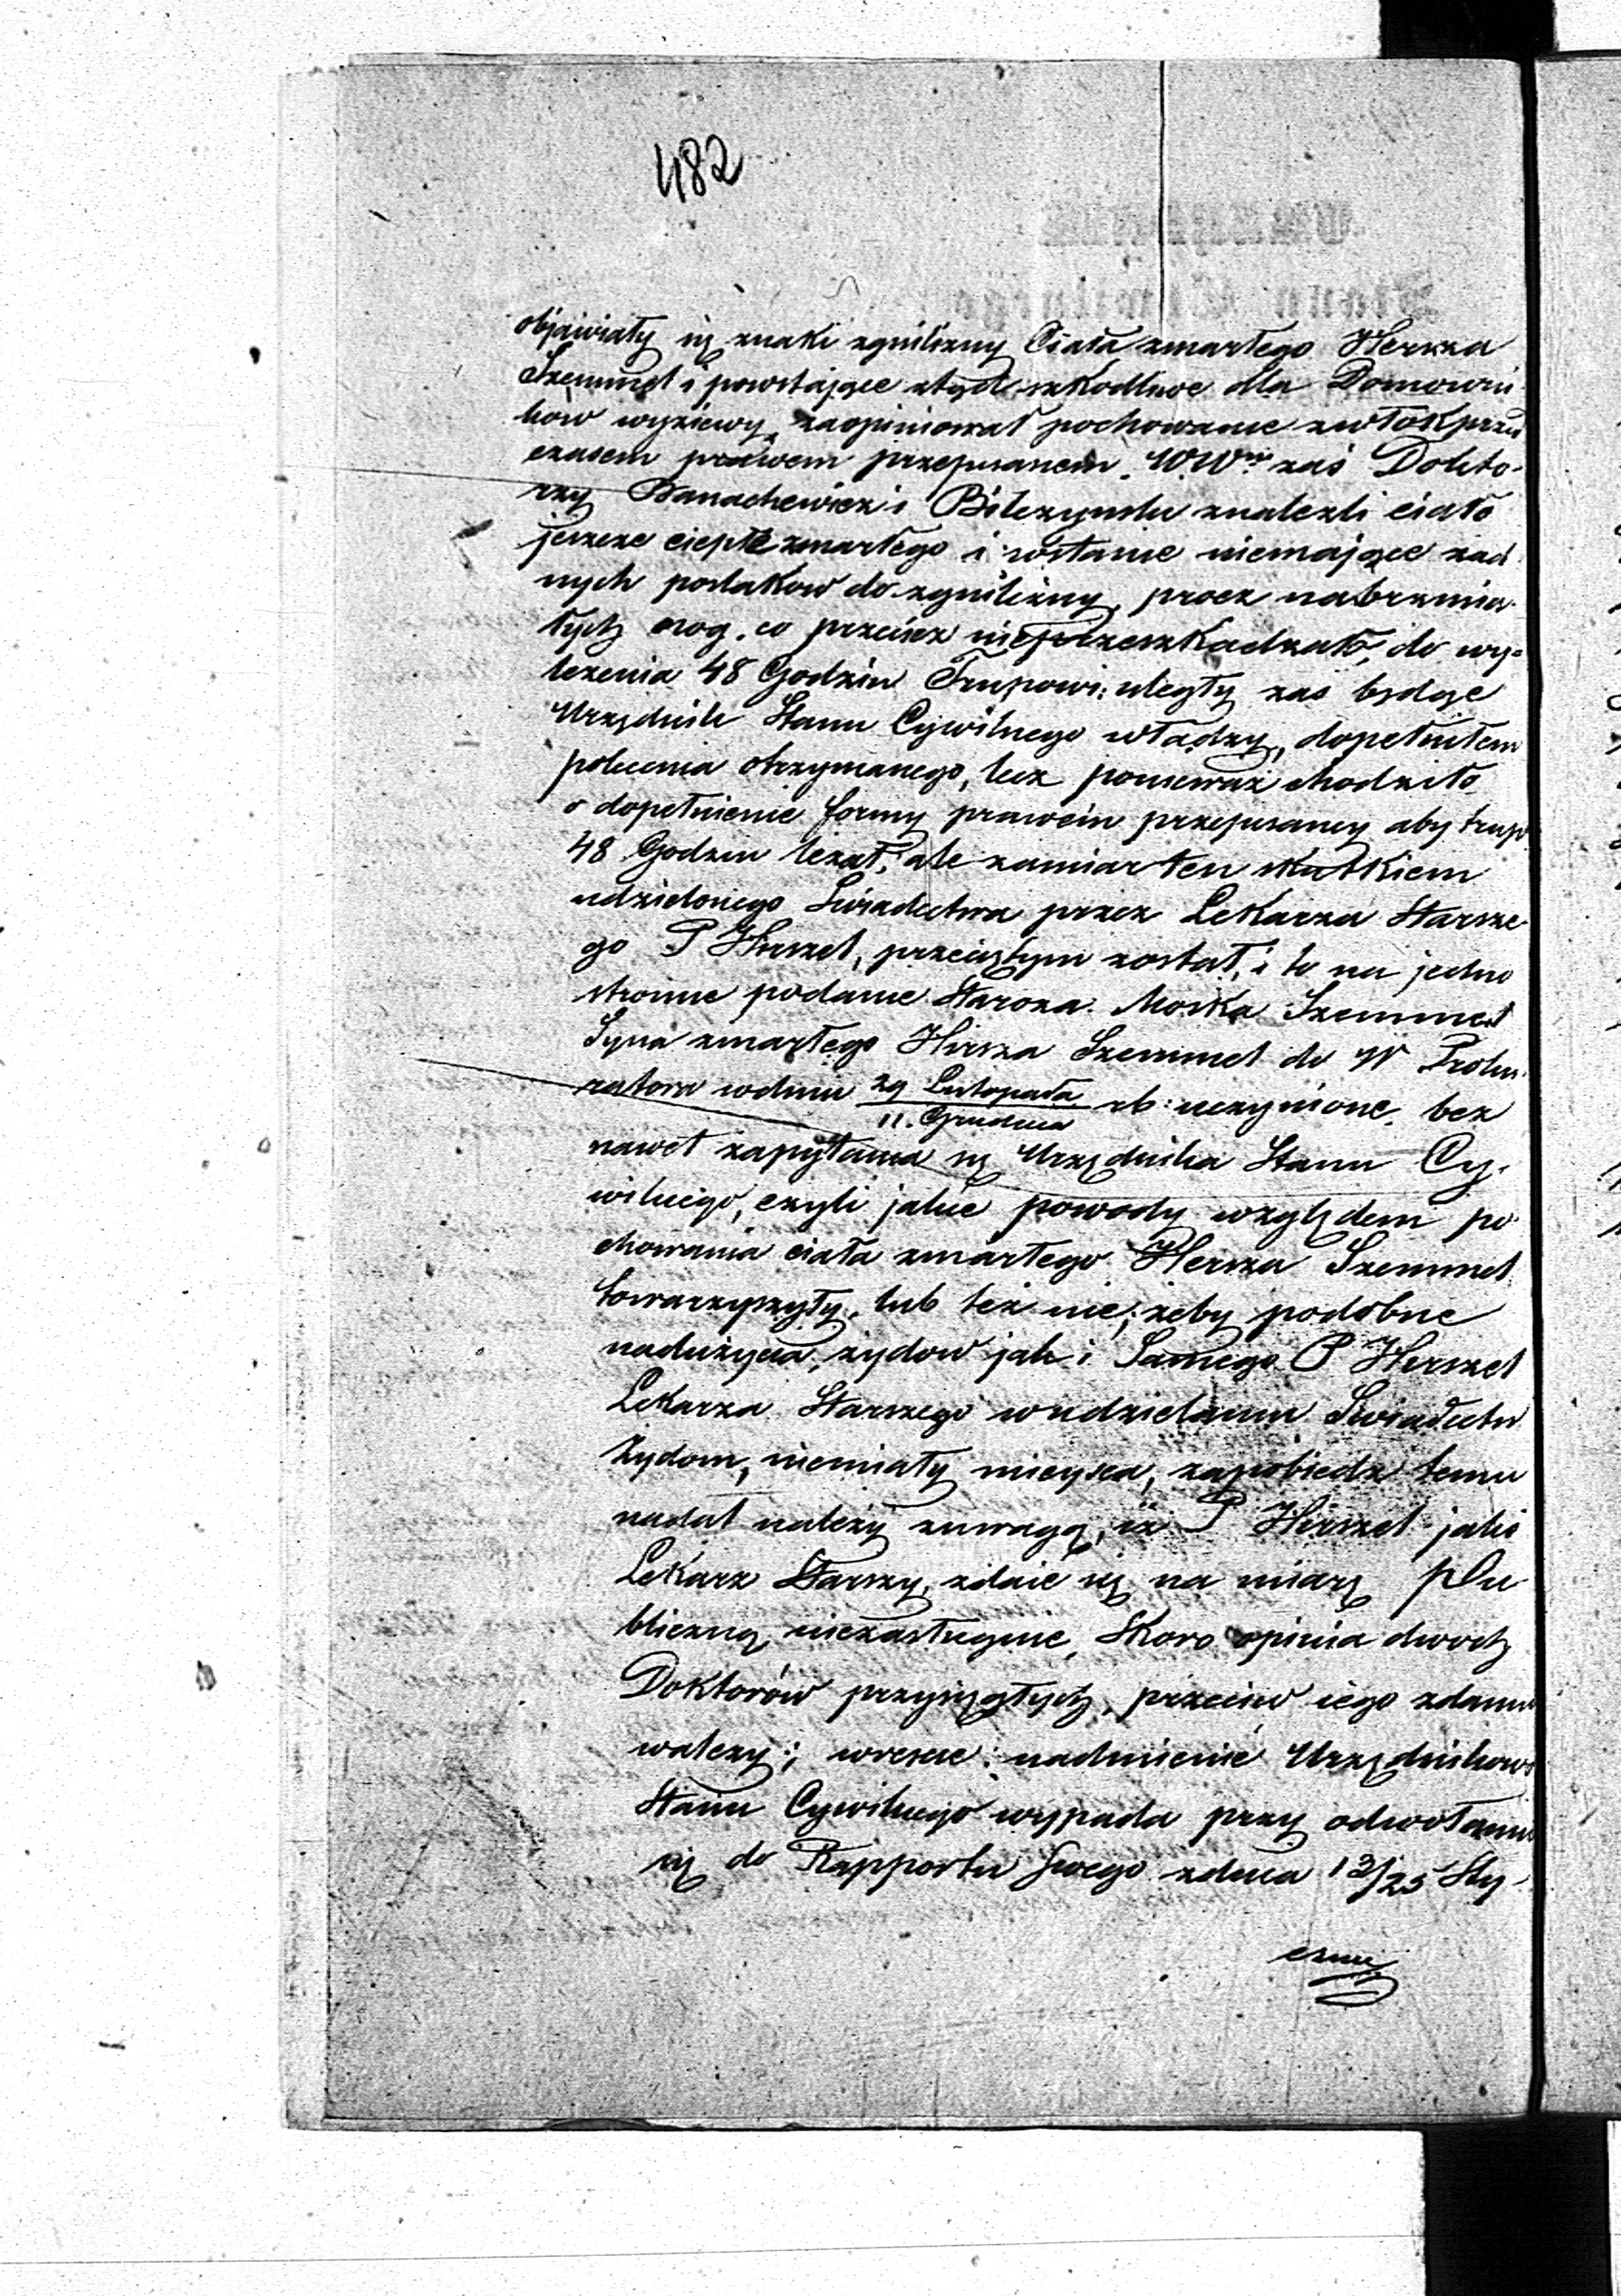 482
objawiały się znaki zgnilizny Ciała zmarłego Herszka
Szemmel i powstające ztąd szkodliwe dla Domowni-
ków wyziewy, zaopiniował pochowanie zwłok przed
czasem prawem przepisanem. WW zaś Dokto-
rzy Banachewicz i Bilczyński znalezli ciało
jeszcze ciepłe zmarłego i wstanie niemające żad-
nych poszlakow do zgnilizny, procz nabrzmia-
łych nog, co przeciez nieprzeszkadzało, do wy-
leżenia 48 Godzin Trupowi: uległy zaś będąc
Urzędnik Stanu Cywilnego władzy, dopełniłem
polecenia otrzymanego, lecz ponieważ chodziło
o dopełnienie formy prawem przepisaney aby trup
48 Godzin leżał, ale zamiar ten skutkiem
udzielonego Swiadectwa przez Lekarza Starsze-
go P Herszel, przeciętym został, i to na jedno
stronne podanie Staroza. Moska Szemmel
Syna zmarłego Hersza Szemmel do W Proku-
ratora wdniu 29 Listopada
11. Grudnia
rb: uczynione, bez
nawet zapytania się Urzędnika Stanu Cy-
wilnego, czyli jakie powody względem po-
chowania ciała zmarłego Hersza Szemmel
towarzyszyły, lub też nie; żeby podobne
nadużycia, żydow jak i Samego P Herszel
Lekarza Starszego wudzielaniu Swiadectw
Żydom, niemiały mieysca, zapobiedz temu
nadal należy zuwagą, iż P Herszel jako
Lekarz Starszy, zdaie się na wiarę pu-
bliczną niezasługuie, skoro opinia dwoch
Doktorów przysięgłych, przeciw iego zdaniu
walczy; wreszcie: nadmienić Urzędnikowi
Stanu Cywilnego wypada przy odwołaniu
się do Rapportu swego zdnia 13/25 Sty-
cznia